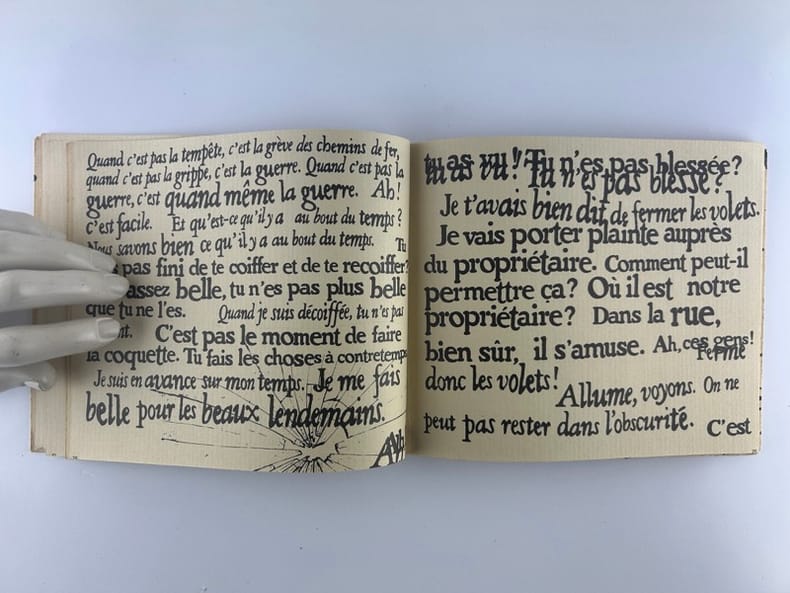 Quand c'est pas la tempête, c'est la grève des chemins de fer,
quand c'est pas la grippe, c'est la guerre. Quand c'est pas la
guerre, c'est quand même la guerre. Ah!
c'est facile. Et qu'est-ce qu'il y a au bout du temps?
Nous savons bien ce qu'il y a au bout du temps. Tu
pas fini de te coiffer et de te recoiffer?
assez belle, tu n'es pas plus belle
que tu ne l'es. Quand je suis décoiffée, tu n'es pas
C'est pas le moment de faire
la coquette. Tu fais les choses à contretemps
Je suis en avance sur mon temps. Je me fais
belle pour les beaux lendemains.
Ah
tu as vu! Tu n'es pas blessée?
tu as vu! Tu n'es pas blessé?
Je t'avais bien dit de fermer les volets.
Je vais porter plainte auprès
du propriétaire. Comment peut-il
permettre ça? Où il est notre
propriétaire? Dans la rue,
bien sûr, il s'amuse. Ah, ces gens!
Ferme
donc les volets!
Allume, voyons. On ne
peut pas rester dans l'obscurité. C'est